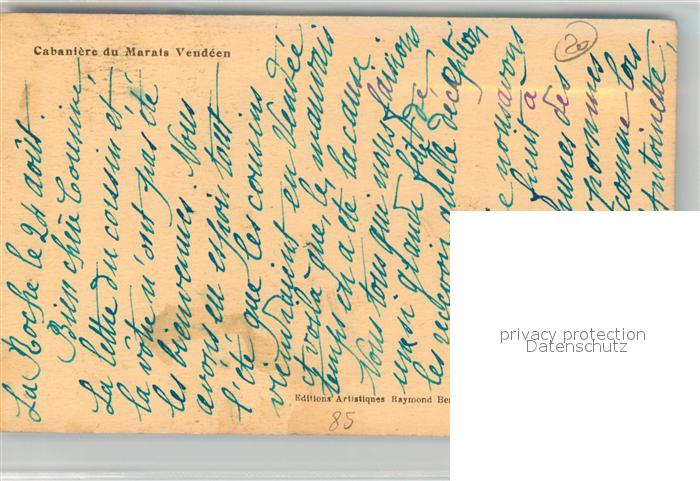 Cabanière du Marais Vendéen
20
La Roche le 24 août.
Bien chère Cousine,
La lettre du cousin et
la vôtre n'ont pas été
les bienvenues. Nous
avons eu espoir tout
l'été que les cousins
viendraient en Vendée
et voilà que, le mauvais
temps en a été la cause.
Nous tous qui nous faisions
une si grande fête de
les recevoir quelle déception
nous avons
fruit à
des
pommes
comme lors
Antoinette,
Editions Artistiques Raymond Be
85
privacy protection
Datenschutz